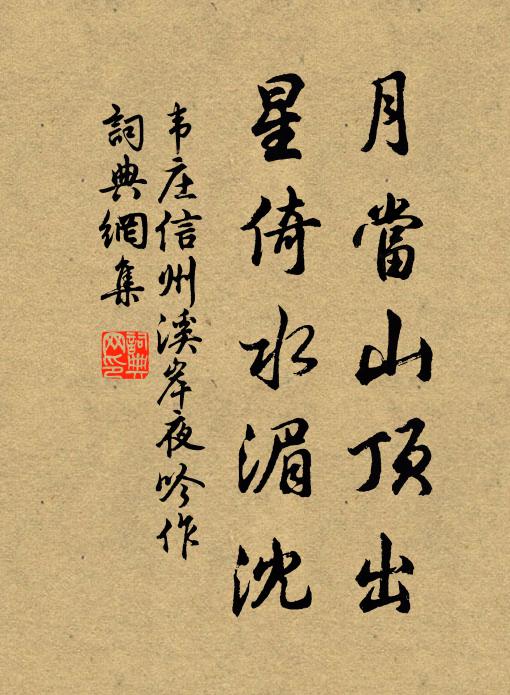 月當山頂出
星倚水湄沈
韦庄信州溪岸夜吟作
詞典網集
詞典
网印